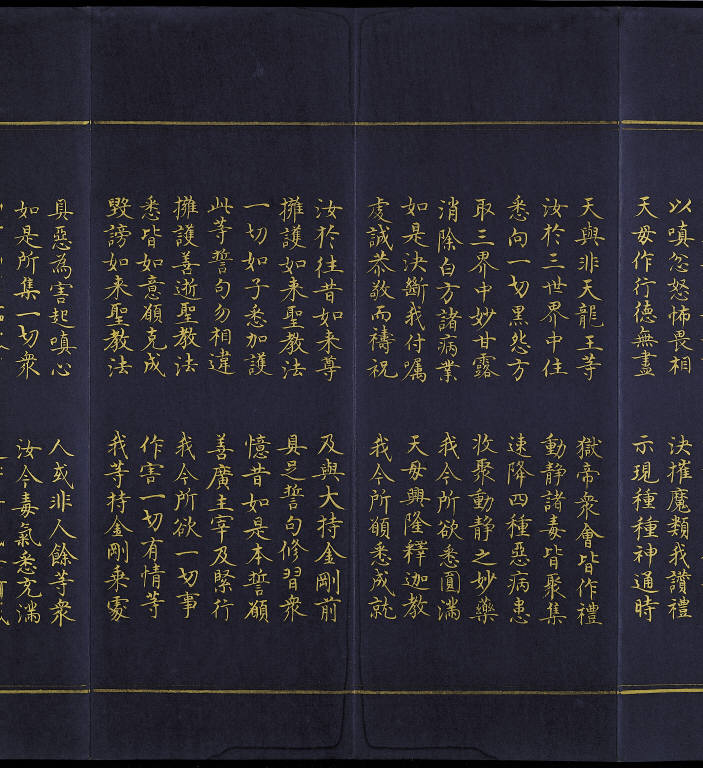 以嗔忿怒怖畏相 決摧魔類我讚禮
天母作行德無盡 示現種種神通時
天與非天龍王等 獄帝衆會皆作禮
汝於三世界中住 動静諸毒皆聚集
悉向一切黑怨方 速降四種惡病患
取三界中妙甘露 收聚動静之妙藥
消除白方諸病業 我今所欲悉圓滿
如是決斷我付嘱 天母興隆釋迦教
虔誠恭敬而禱祝 我今所願悉成就
汝於往昔如来尊 及與大持金剛前
擁護如来聖教法 具足誓句修習衆
一切如子悉加護 憶昔如是本誓願
此等誓句勿相違 善廣主宰及緊行
擁護善逝聖教法 我今所欲一切事
悉皆如意願克成 作害一切有情等
毀謗如来聖教法 我等持金剛乘處
具惡為害起嗔心 人或非人餘等衆
如是所集一切衆 汝今毒氣悉充滿